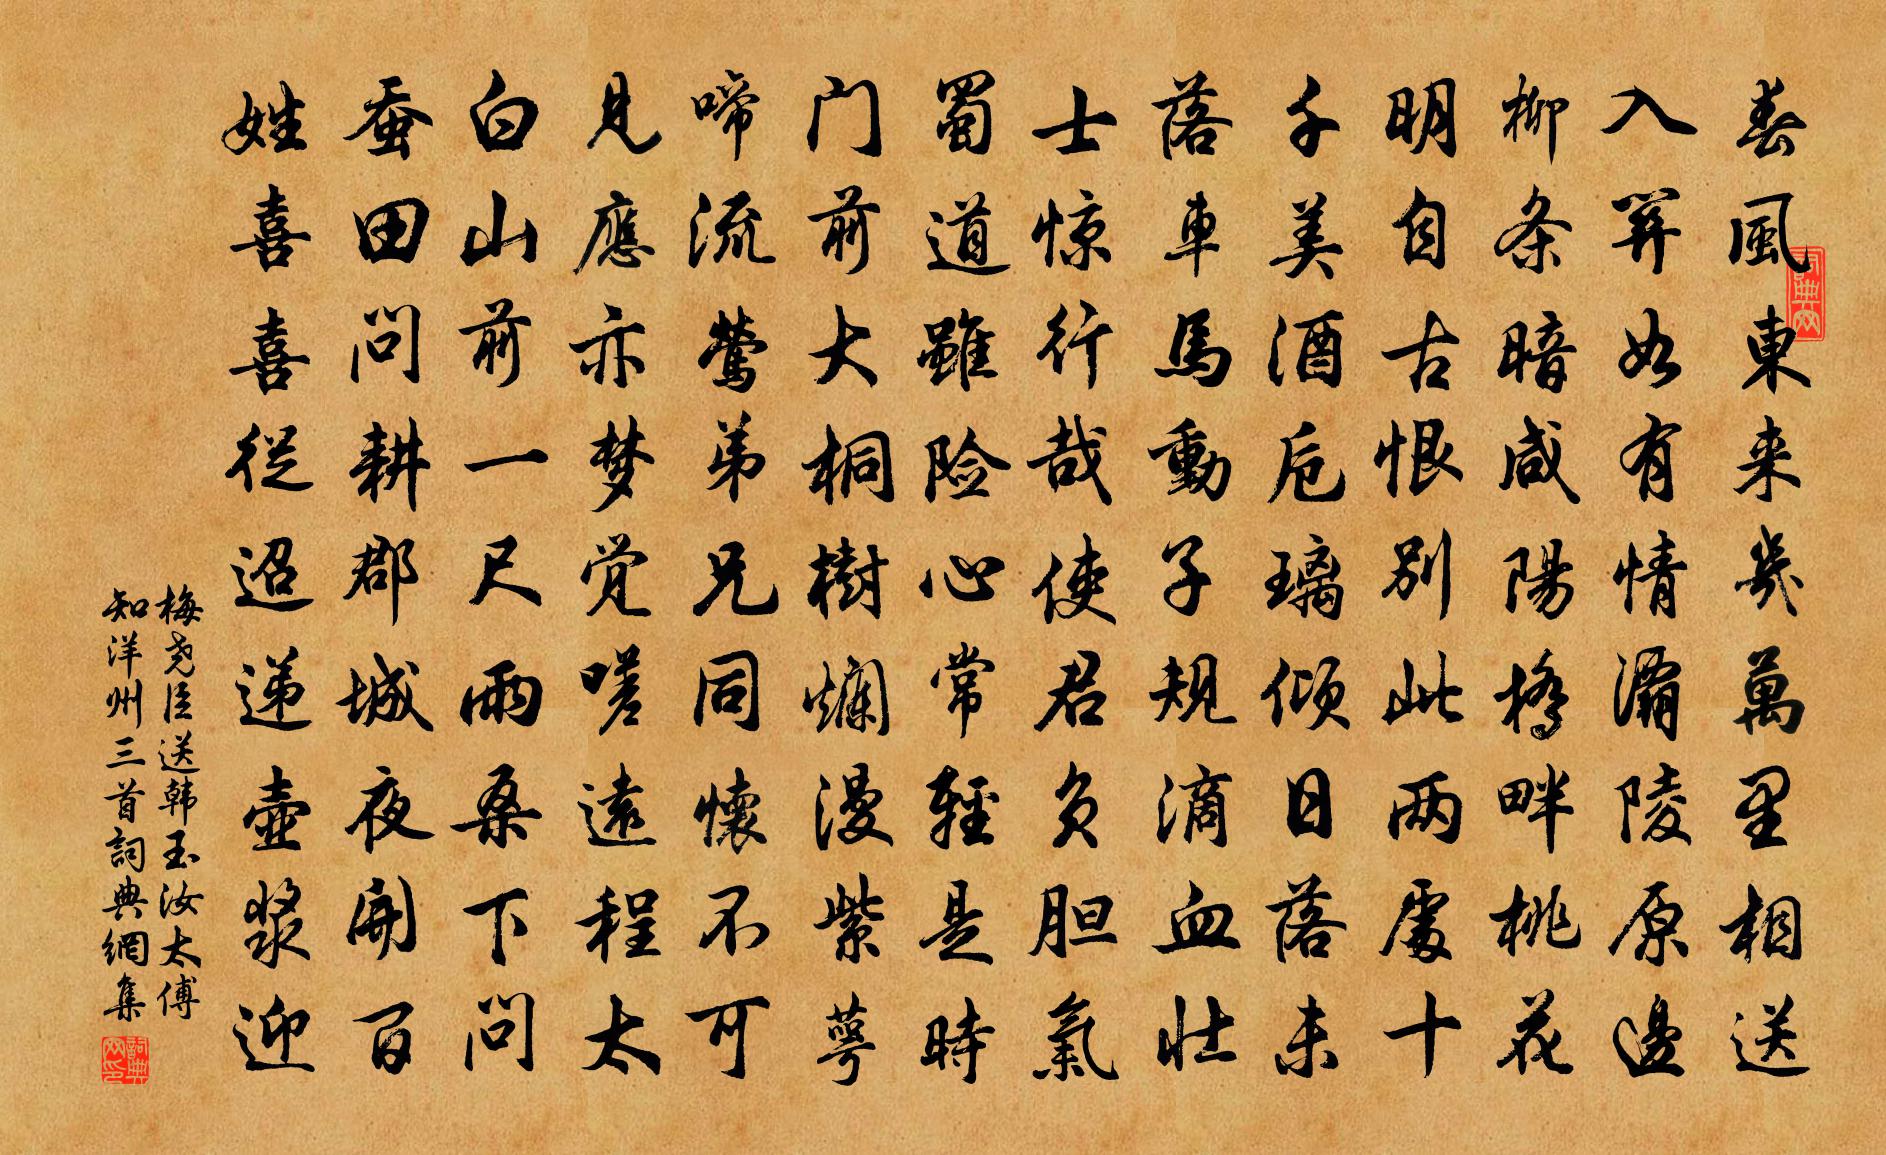 春風東来幾萬里相送
入關如有情灞陵原邊
柳条暗咸陽橋畔桃花
明自古恨别此两處十
千美酒卮璃倾日落未
落車馬動子規滴血壮
士惊行哉使君負胆氣
蜀道雖险心常輕是時
门前大桐樹爛漫紫萼
啼流鶯弟兄同懷不可
見應亦梦觉嗟遠程太
白山前一尺雨桑下問
蚕田問耕郡城夜開百
姓喜喜從迢递壺漿迎
梅尧臣送韩玉汝太傅
知洋州三首詞典網集
詞典网
詞典网印